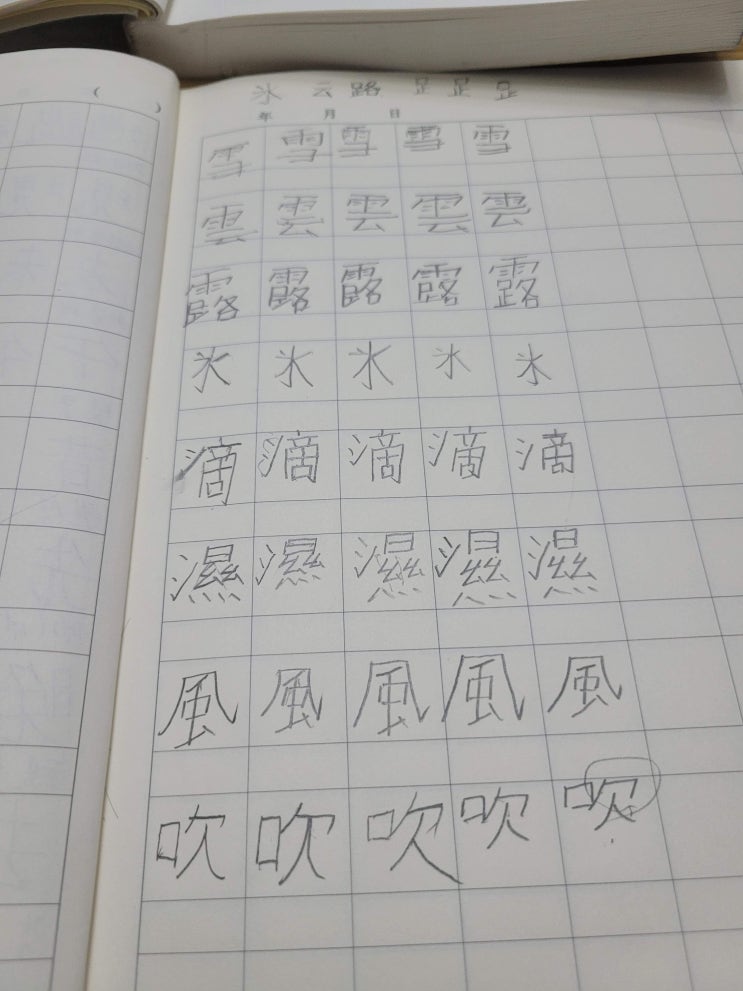 ( )
氷 云 路 𧾷 𧾷 𧾷
年 月 日
雪 雪 雪 雪 雪
雲 雲 雲 雲 雲
露 露 露 露 露
氷 氷 氷 氷 氷
滴 滴 滴 滴 滴
濕 濕 濕 濕 濕
風 風 風 風 風
吹 吹 吹 吹 吹